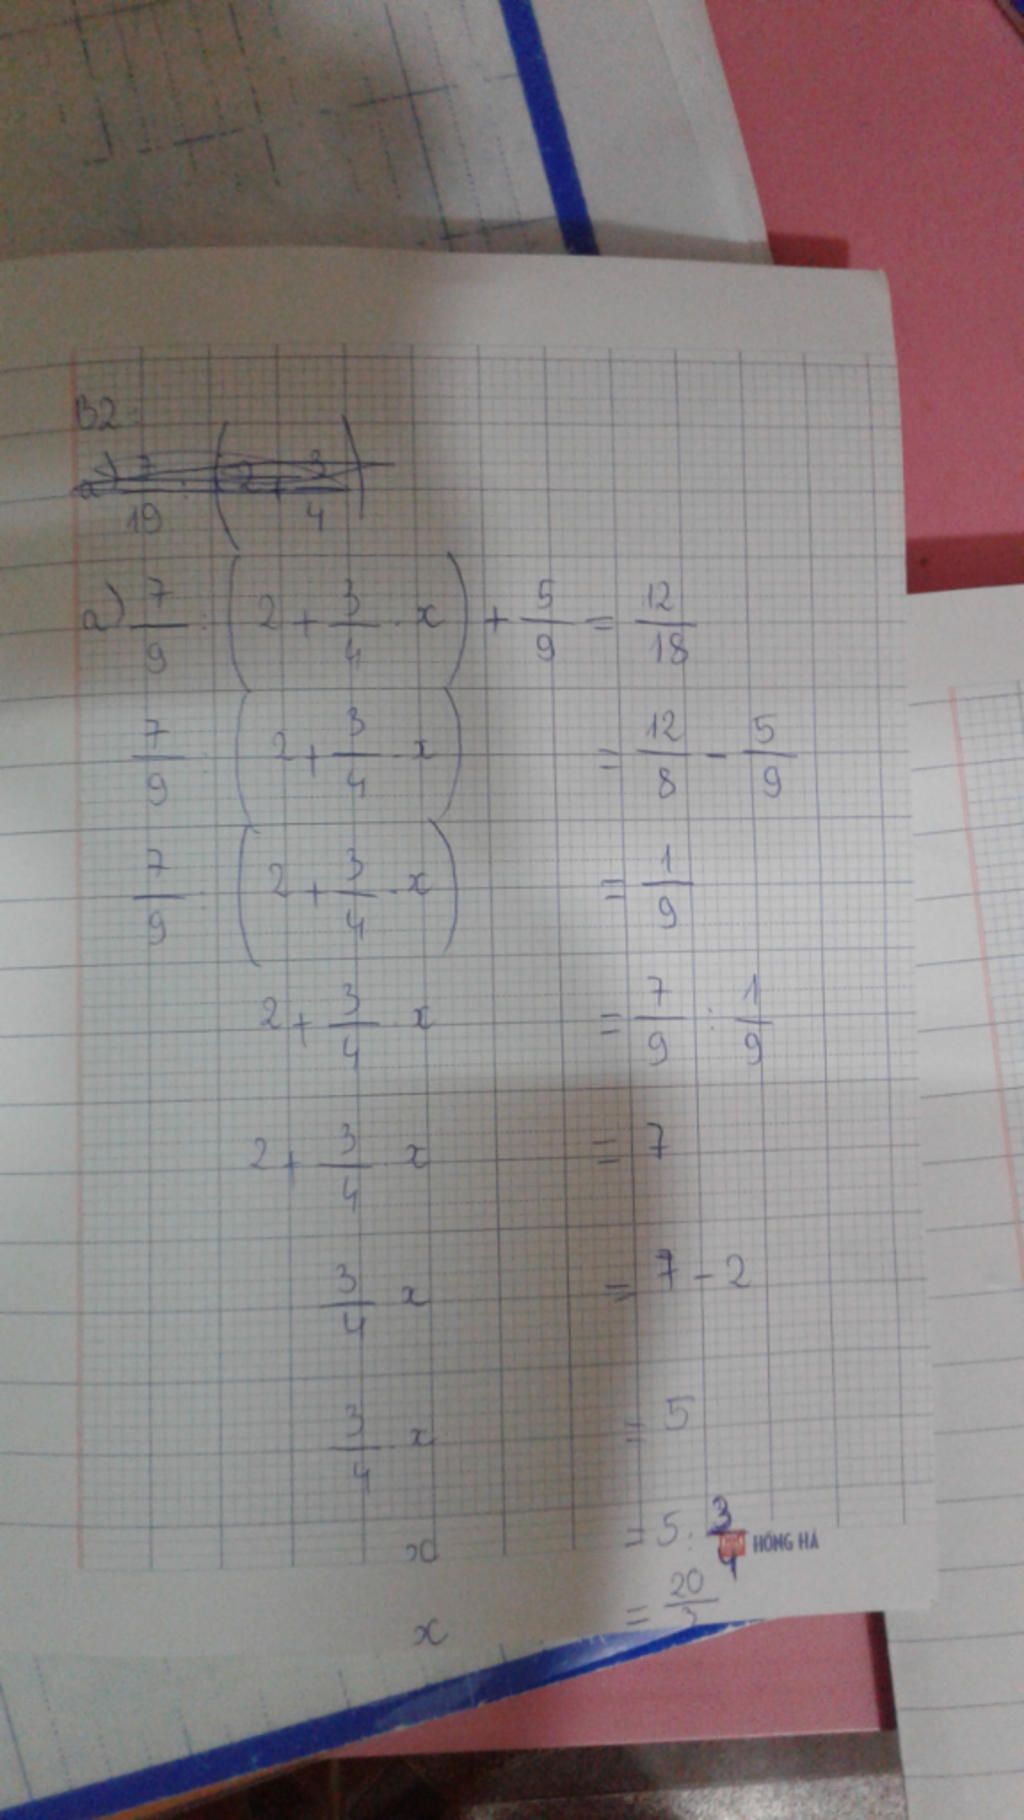 B2:
a) 7/19 : (2 + 3/4
a) 7/9 : (2 + 3/4 . x) + 5/9 = 12/18
7/9 : (2 + 3/4 . x) = 12/8 - 5/9
7/9 : (2 + 3/4 . x) = 1/9
2 + 3/4 . x = 7/9 : 1/9
2 + 3/4 x = 7
3/4 x = 7 - 2
3/4 . x = 5
x = 5 : 3/4
HỒNG HÀ
x = 20/3